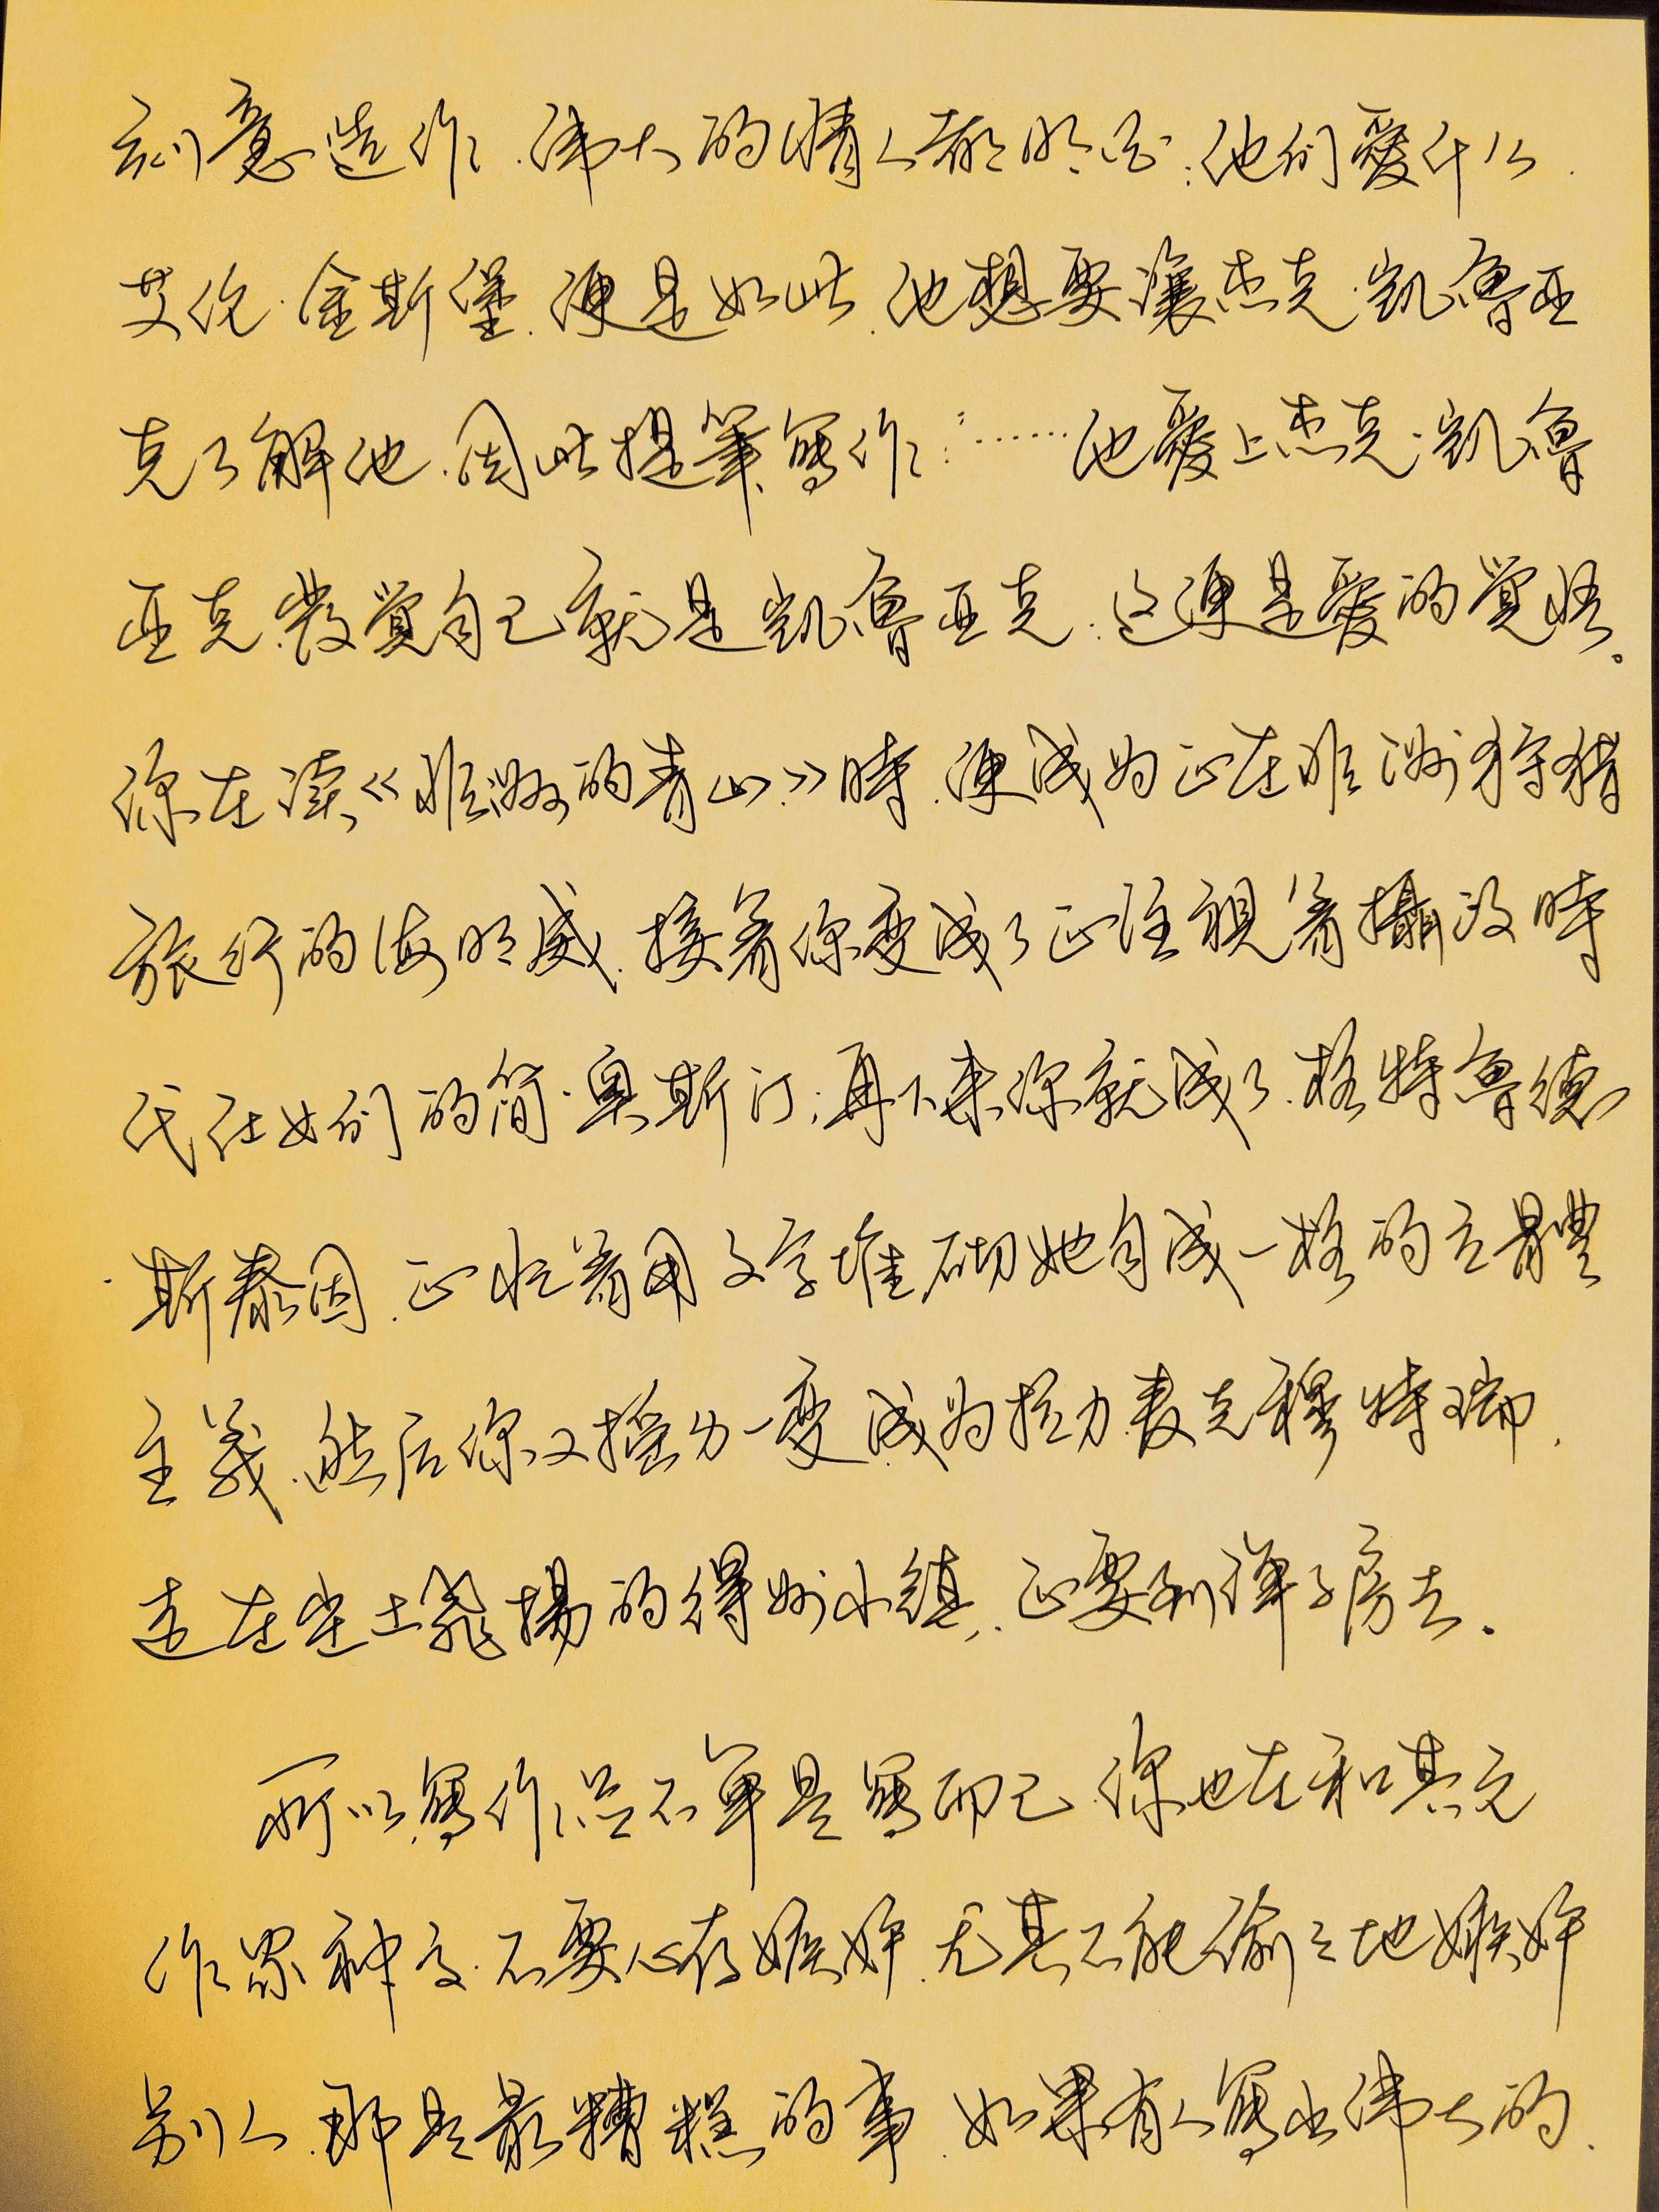 刻意造作,偉大的情人都明白:他们爱什么,
艾伦·金斯堡,便是如此,他想要讓杰克·凱魯亚
克了解他,因此提筆寫作:“……他愛上杰克·凱魯
亚克,發覺自己就是凱魯亚克,这便是愛的覺悟。
你在读《非洲的青山》時,便成为正在非洲狩猎
旅行的海明威,接着你变成了正注視着攝政時
代仕女们的简·奥斯汀;再下来你就成了,格特魯德
·斯泰因,正忙着用文字堆砌她自成一格的立體
主義,然后你又摇身一变,成为拉力·麦克穆特瑞,
走在尘土飛揚的得州小鎮,正要到弹子房去.
所以,寫作,总不單是寫而已,你也在和其它
作家神交,不要心存嫉妒,尤其不能偷偷地嫉妒
别人,那是最糟糕的事,如果有人寫出偉大的,